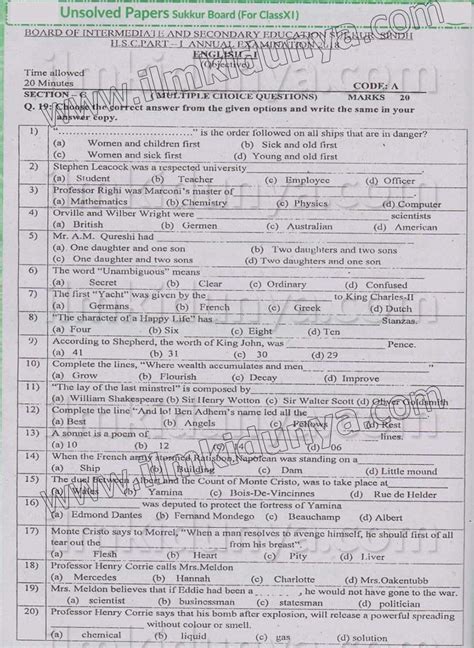 Unsolved Papers Sukkur Board (For ClassXI)
BOARD OF INTERMEDIATE AND SECONDARY EDUCATION SUKKUR SINDH
H.S.C.PART – I ANNUAL EXAMINATION 2018
ENGLISH – I
(Objective)
Time allowed
20 Minutes
CODE: A
SECTION – C (MULTIPLE CHOICE QUESTIONS) MARKS 20
Q. 19: Choose the correct answer from the given options and write the same in your
answer copy.
1) "....................." is the order followed on all ships that are in danger?
(a) Women and children first (b) Sick and old first
(c) Women and sick first (d) Young and old first
2) Stephen Leacock was a respected university
(a) Student (b) Teacher (c) Employee (d) Officer
3) Professor Righi was Marconi's master of
(a) Mathematics (b) Chemistry (c) Physics (d) Computer
4) Orville and Wilber Wright were scientists
(a) British (b) German (c) Australian (d) American
5) Mr. A.M. Qureshi had
(a) One daughter and one son (b) Two daughters and two sons
(c) One daughter and two sons (d) Two daughters and one son
6) The word "Unambiguous" means
(a) Secret (b) Clear (c) Ordinary (d) Confused
7) The first "Yacht" was given by the to King Charles-II
(a) Germans (b) French (c) Greek (d) Dutch
8) "The character of a Happy Life" has Stanzas.
(a) Four (b) Six (c) Eight (d) Ten
9) According to Shepherd, the worth of King John, was Pence.
(a) 41 (b) 31 (c) 30 (d) 29
10) Complete the lines, "Where wealth accumulates and men
(a) Grow (b) Flourish (c) Decay (d) Improve
11) "The lay of the last minstrel" is composed by
(a) William Shakespeare (b) Sir Henry Wotton (c) Sir Walter Scott (d) Oliver Goldsmith
12) Complete the line "And lo! Ben Adhem's name led all the
(a) Best (b) Angels (c) Fellows (d) Rest
13) A sonnet is a poem of lines.
(a) 10 (b) 12 (c) 14 (d) 06
14) When the French army stormed Ratisbon, Napolean was standing on a
(a) Ship (b) Building (c) Dam (d) Little mound
15) The duel between Albert and the Count of Monte Cristo, was to take place at
(b) Yamina (c) Bois-De-Vincinnes (d) Rue de Helder
16) was deputed to protect the fortress of Yamina
(a) Edmond Dantes (b) Fernand Mondego (c) Beauchamp (d) Albert
17) Monte Cristo says to Morrel, "When a man resolves to avenge himself, he should first of all
tear out the from his breast"
(a) Flesh (b) Heart (c) Pity (d) Liver
18) Professor Henry Corrie calls Mrs.Meldon
(a) Mercedes (b) Hannah (c) Charlotte (d) Mrs.Oakentubb
19) Mrs. Meldon believes that if Eddie had been a , he would not have gone to the war.
(a) scientist (b) businessman (c) statesman (d) politician
20) Professor Henry Corrie says that his bomb after explosion, will release a powerful spreading
without colour or smell.
(a) chemical (b) liquid (c) gas (d) solution
www.ilmkidunya.com
www.ilmkidunya.com